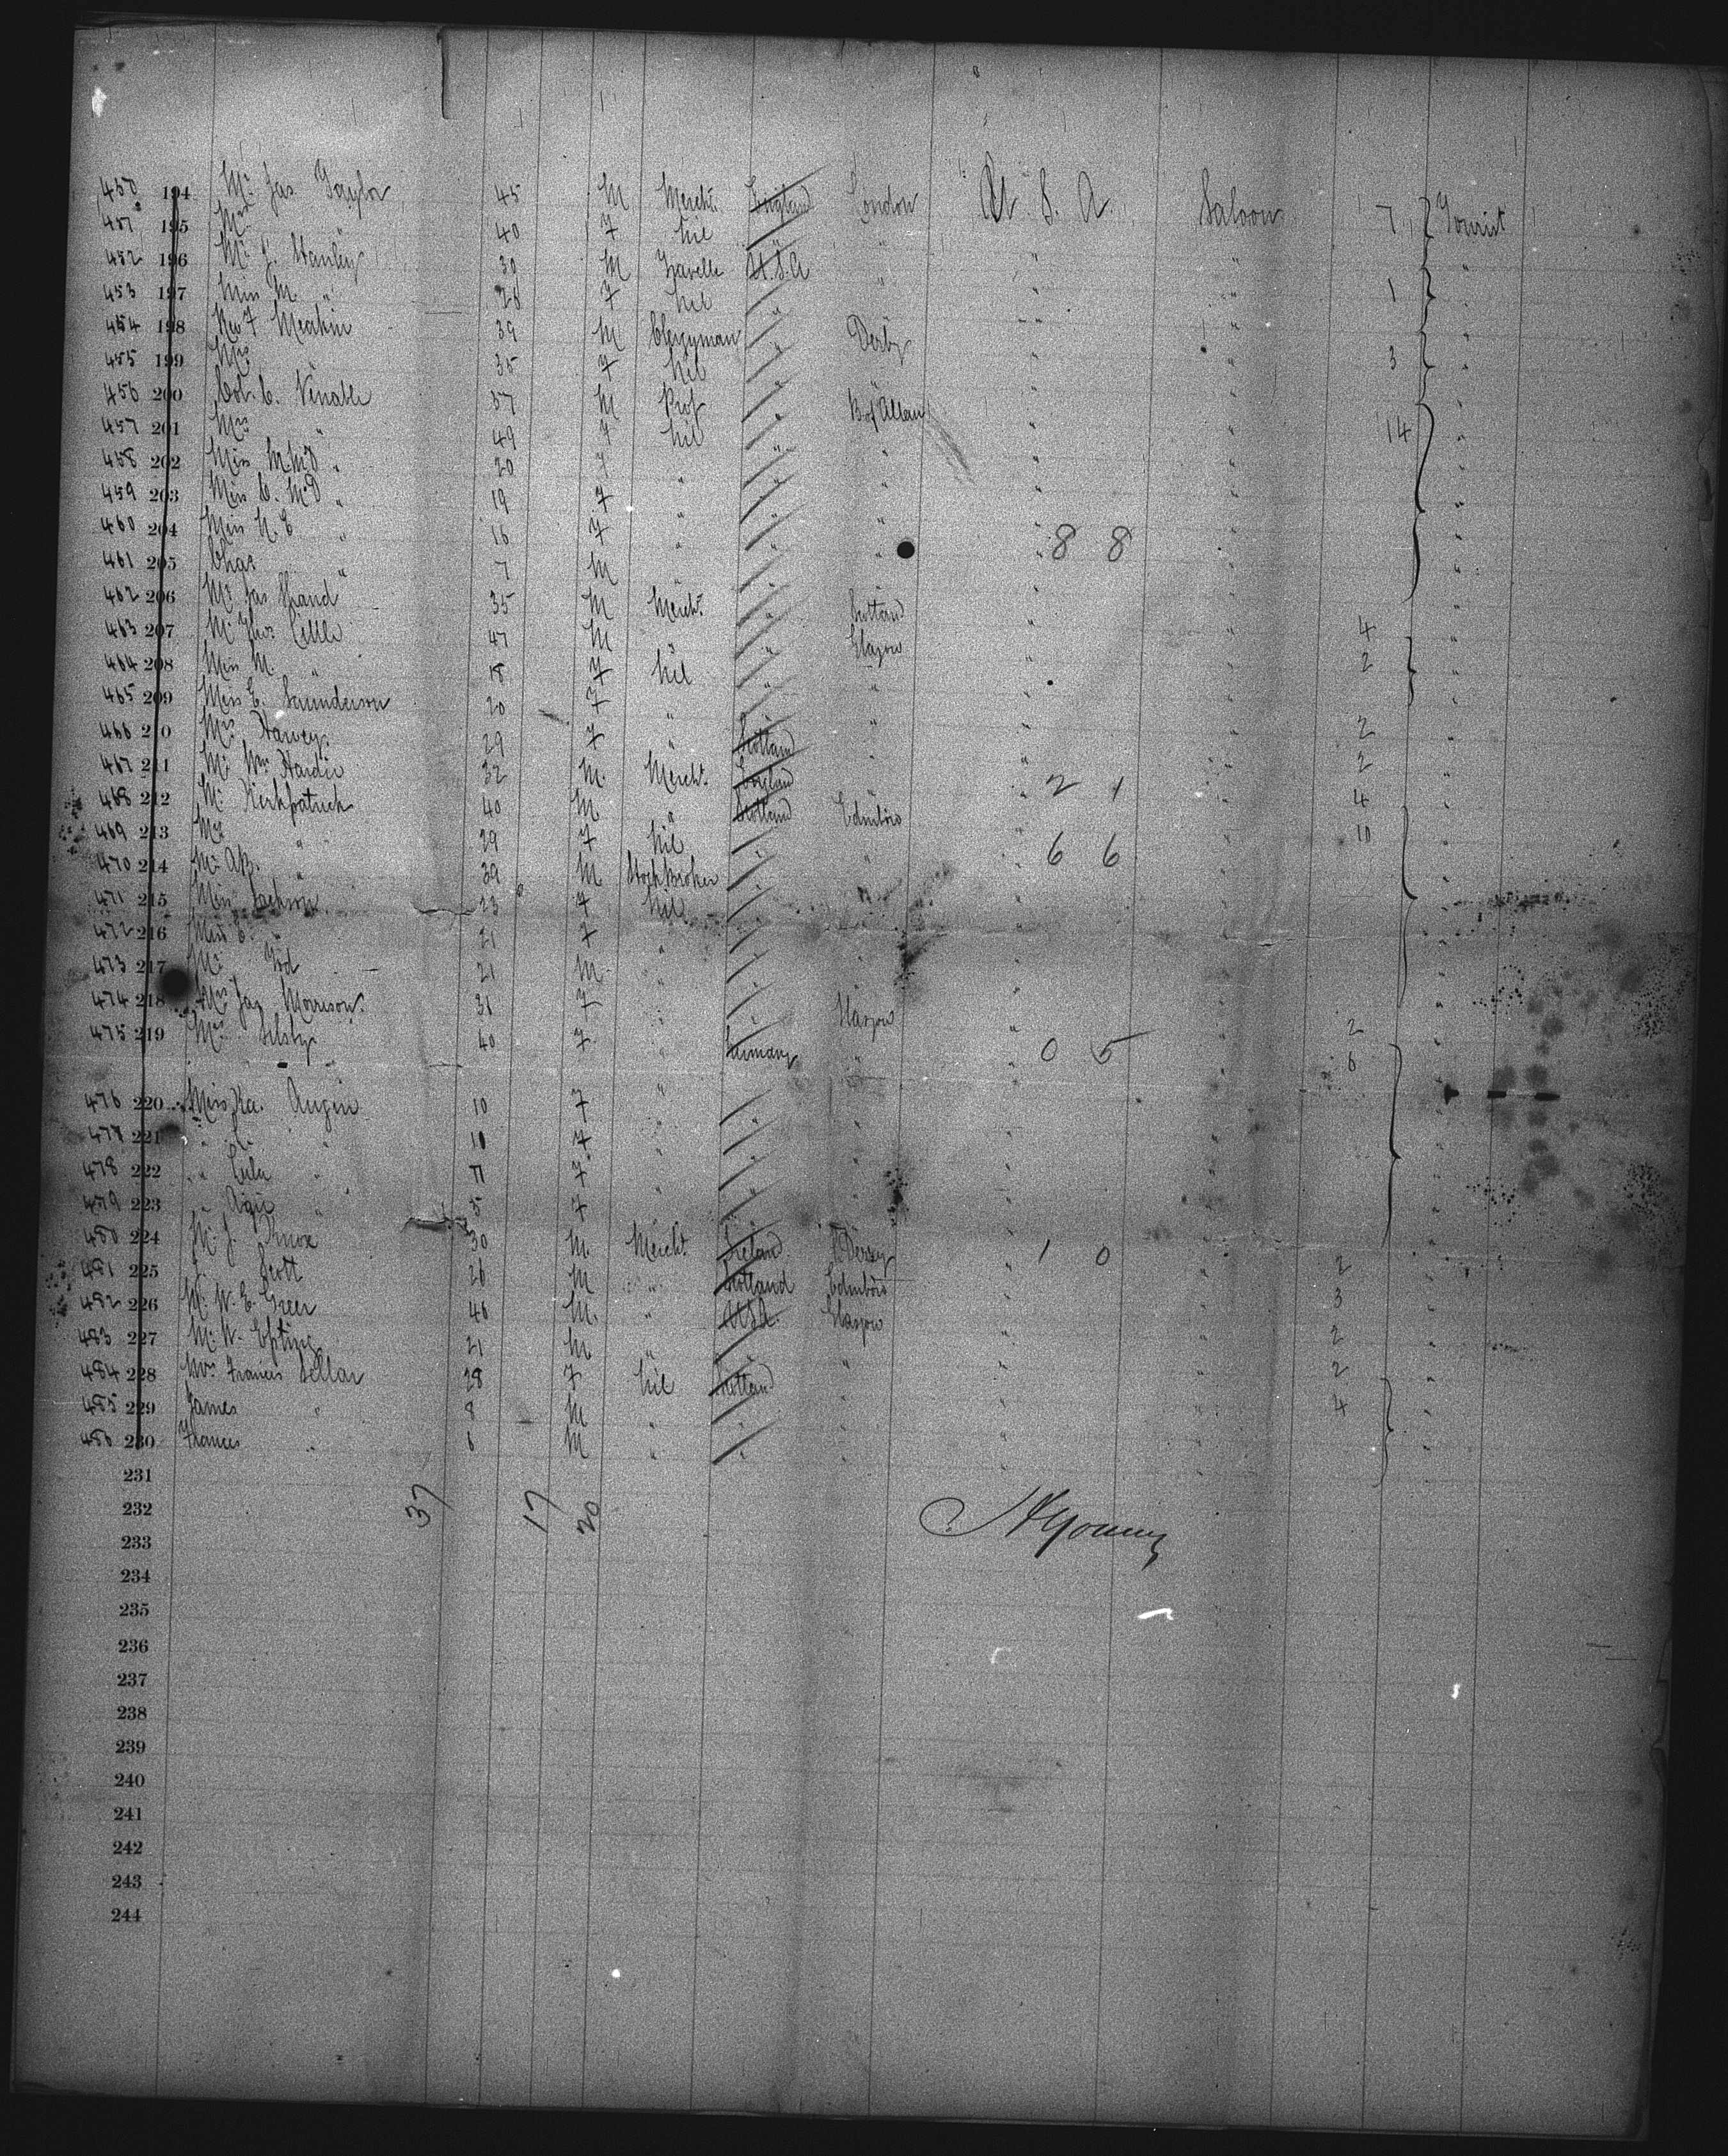 450 194 Mr Jas Taylor 45 M Mercht England London U. S. A. Saloon 7 Tourist
451 195 Mrs " 40 F Nil " " " " "
452 196 Mr J. Stanley 30 M U.S.A " " " "
453 197 Miss M. " 28 F Nil " " " " 1 "
454 198 Rev F Meakin 39 M Clergyman " Derby " " "
455 199 Mrs " 35 F Nil " " " " 3 "
456 200 Col. C. Venable 57 M Prof " B of Allan " " "
457 201 Mrs " 49 F Nil " " " " 14 "
458 202 Miss " 20 F " " " " " "
459 203 Miss C. McD " 19 F " " " " " "
460 204 Miss N. E " 16 F " " " " " "
461 205 Chas " 7 M " " " " 8 8 " "
462 206 Mr Jas Shand 35 M Mercht " Scotland " " 4 "
463 207 Mr Thos Little 47 M " " Glasgow " " 2 "
464 208 Miss M. " 18 F Nil " " " " "
465 209 Miss E. Saunderson 20 F " " " " " 2 "
466 210 Mrs Harvey 29 F " Scotland " " " 2 "
467 211 Mr Wm Hardie 32 M. Mercht England " " 2 1 " 4 "
468 212 Mr Kirkpatrick 40 M. " Scotland Edinboro " " 10 "
469 213 Mrs " 29 F Nil " " " 6 6 " "
470 214 Mr AB. " 39 M Stock Broker " " " " "
471 215 Miss Jackson 23 F Nil " " " " "
472 216 Miss C. " 21 F " " " " " "
473 217 Mr 21 M " " " " " "
474 218 Mrs Jas Morrison 31 F " " Glasgow " " 2 "
475 219 Mrs 40 F " Germany " " 0 5 " 6 "
476 220 Miss Ka. Augin 10 F " " " " " "
477 221 " " 10 F " " " " " "
478 222 " Lulu " 11 F " " " " " "
479 223 " " 5 F " " " " " "
480 224 Mr J. Knox 30 M. Mercht Ireland 1 0 " 2 "
481 225 J. Scott 26 M " Scotland Edinboro " " 3 "
482 226 Mr W. E. Greer 46 M. " U.S.A. Glasgow " " 2 "
483 227 Mr W. Epting 21 M " " " " " 2 "
484 228 Mrs Frances Sellar 28 F Nil Scotland " " " 4 "
485 229 James " 8 M " " " " " "
486 230 Frances " 6 M " " " " " "
231
232 37 17 20
233
234
235
236
237
238
239
240
241
242
243
244